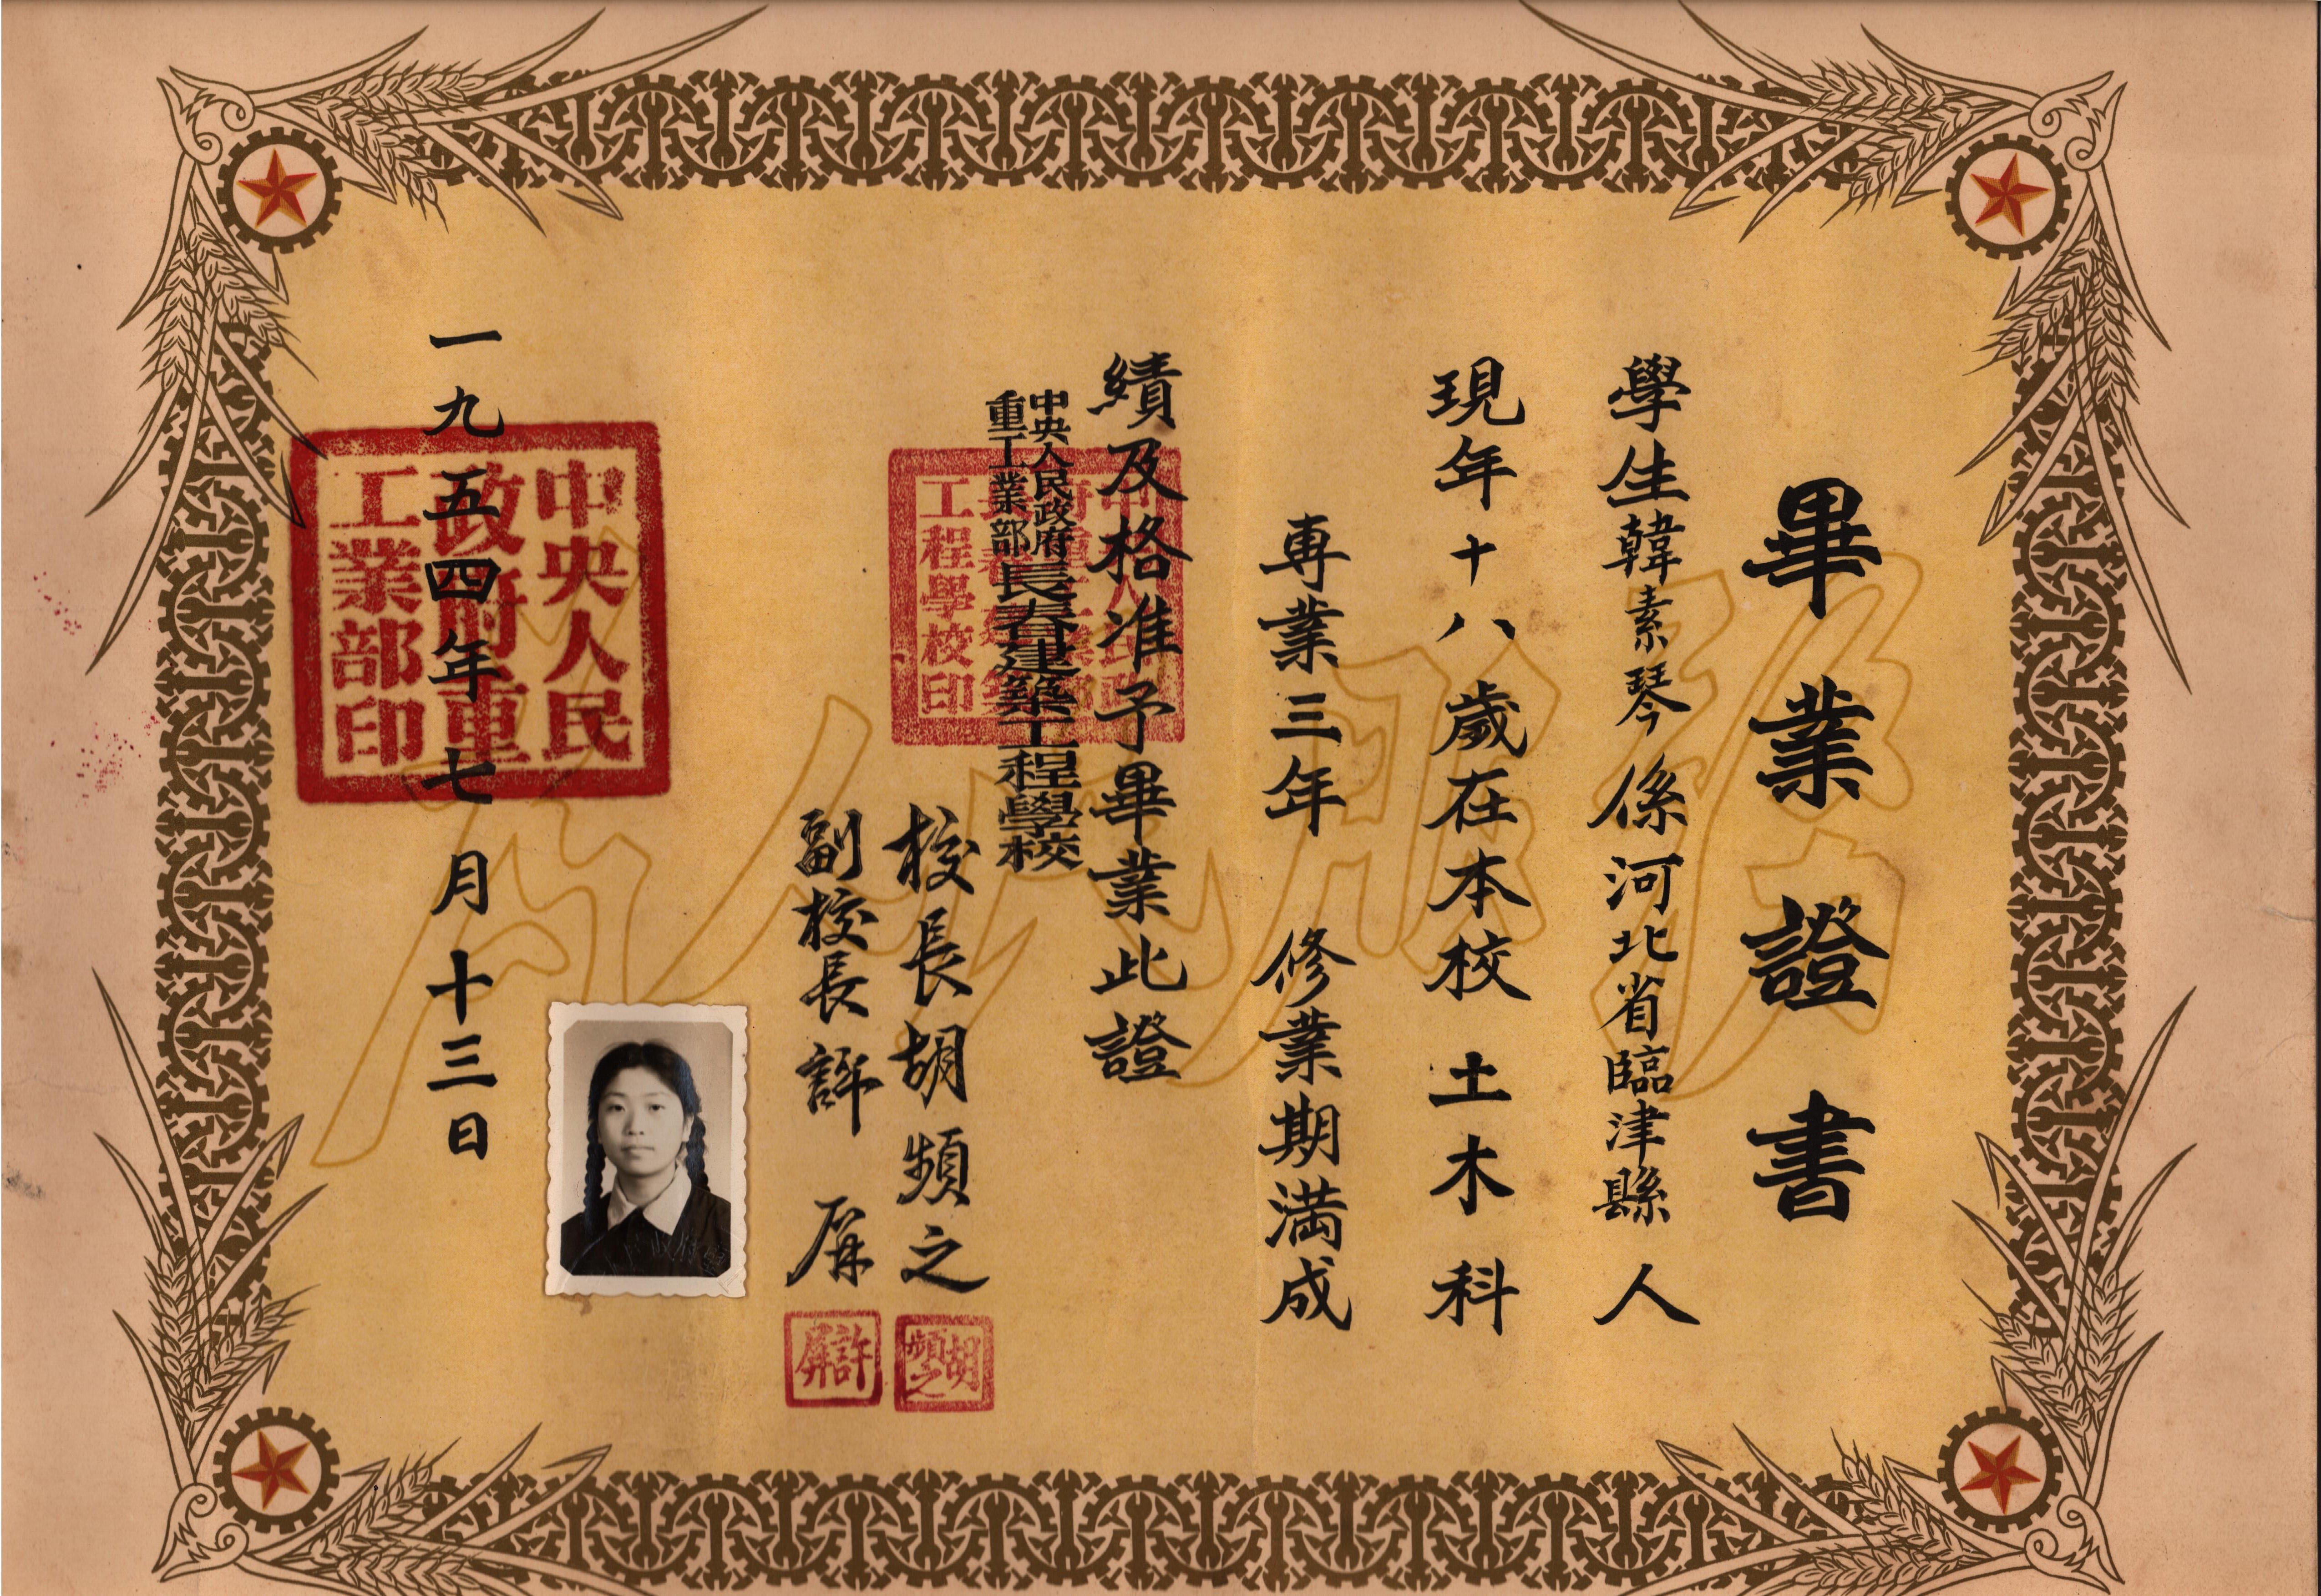 畢業證書
學生韓素琴係河北省臨津縣人
現年十八歲在本校土木科
専業三年修業期満成
績及格准予畢業此證
中央人民政府
重工業部
長春建築工程學校
校長胡頻之
副校長許屏
胡頻之
許屏
一九五四年七月十三日
中央人民
政府重
工業部印
工程學校印
為人民服務